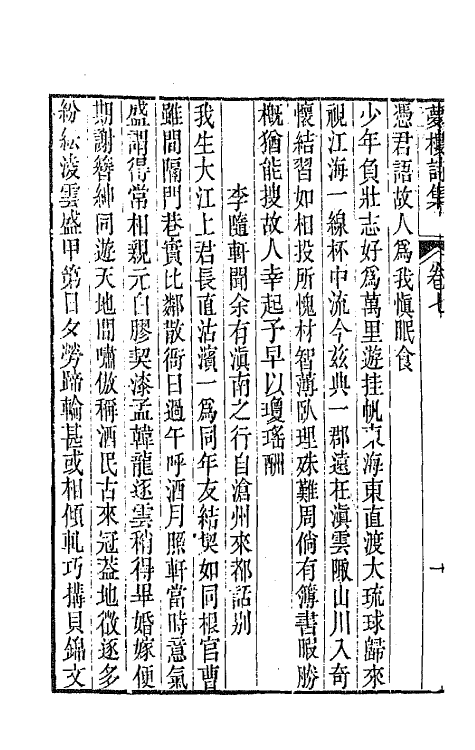 夢樓詩集 卷七
憑君語故人爲我愼眠食
少年負壯志好爲萬里遊挂帆東海東直渡太琉球歸來
視江海一線杯中流今玆典一郡遠在滇雲陬山川入奇
懷結習如相投所愧材智薄臥理殊難周倘有簿書暇勝
概猶能搜故人幸起予早以瓊瑤酬
李隨軒聞余有滇南之行自滄州來都話別
我生大江上君長直沽濱一爲同年友結契如同根官曹
雖間隔門巷實比鄰散衙日過午呼酒月照軒當時意氣
盛謂得常相親元白膠契漆孟韓龍逐雲稍得畢婚嫁便
期謝簪紳同遊天地間嘯傲稱酒民古來冠葢地徵逐多
紛紜淩雲盛甲第日夕勞蹄輪甚或相傾軋巧搆貝錦文